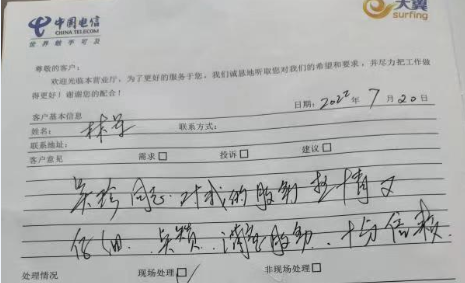 中国电信
CHINA TELECOM
世界触手可及
天翼
surfing
尊敬的客户：
欢迎光临本营业厅，为了更好的服务于您，我们诚恳地听取您对我们的希望和要求，并尽力把工作
做得更好！谢谢您的配合！
日期：2022年7月20日
客户基本信息
姓名： 联系方式：
联系地址：
客户意见 需求□ 投诉□ 建议□
同志 对我的服务热情又
服务 十分
处理情况 现场处理□ 非现场处理□